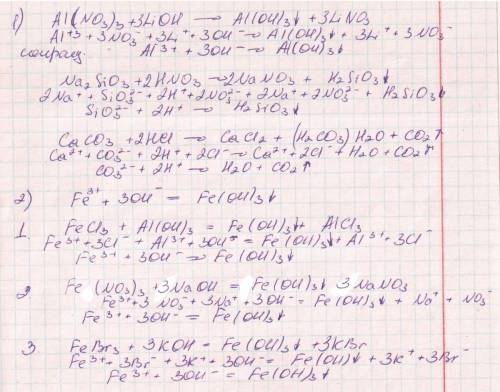 1) Al(NO3)3 + 3LiOH → Al(OH)3↓ + 3LiNO3
Al+3 + 3NO3⁻ + 3Li⁺ + 3OH⁻ → Al(OH)3↓ + 3Li⁺ + 3NO3⁻
сокращ. Al3+ + 3OH⁻ → Al(OH)3↓
Na2SiO3 + 2HNO3 → 2NaNO3 + H2SiO3↓
2Na⁺ + SiO3²⁻ + 2H⁺ + 2NO3⁻ → 2Na⁺ + 2NO3⁻ + H2SiO3↓
SiO3²⁻ + 2H⁺ → H2SiO3↓
CaCO3 + 2HCl → CaCl2 + (H2CO3) H2O + CO2↑
Ca²⁺ + CO3²⁻ + 2H⁺ + 2Cl⁻ → Ca²⁺ + 2Cl⁻ + H2O + CO2↑
CO3²⁻ + 2H⁺ → H2O + CO2↑
2) Fe³⁺ + 3OH⁻ = Fe(OH)3↓
1. FeCl3 + Al(OH)3 = Fe(OH)3↓ + AlCl3
Fe³⁺ + 3Cl⁻ + Al³⁺ + 3OH⁻ = Fe(OH)3↓ + Al³⁺ + 3Cl⁻
Fe³⁺ + 3OH⁻ → Fe(OH)3↓
2. Fe(NO3)3 + 3NaOH = Fe(OH)3↓ 3NaNO3
Fe³⁺ + 3NO3⁻ + 3Na⁺ + 3OH⁻ = Fe(OH)3↓ + Na⁺ + NO3⁻
Fe³⁺ + 3OH⁻ = Fe(OH)3↓
3 FeBr3 + 3KOH = Fe(OH)3↓ + 3KBr
Fe³⁺ + 3Br⁻ + 3K⁺ + 3OH⁻ = Fe(OH)↓ + 3K⁺ + 3Br⁻
Fe³⁺ + 3OH⁻ = Fe(OH)3↓